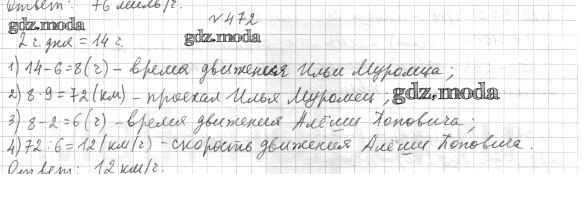 Ответ: 76 миль/ч.
№472
gdz.moda
gdz.moda
2 ч. дня = 14 ч.
1) 14-6=8(ч) - время движения Ильи Муромца;
2) 8·9=72(км) - проехал Илья Муромец; gdz.moda
3) 8-2=6(ч) - время движения Алёши Поповича;
4) 72:6=12(км/ч) - скорость движения Алёши Поповича.
Ответ: 12 км/ч.